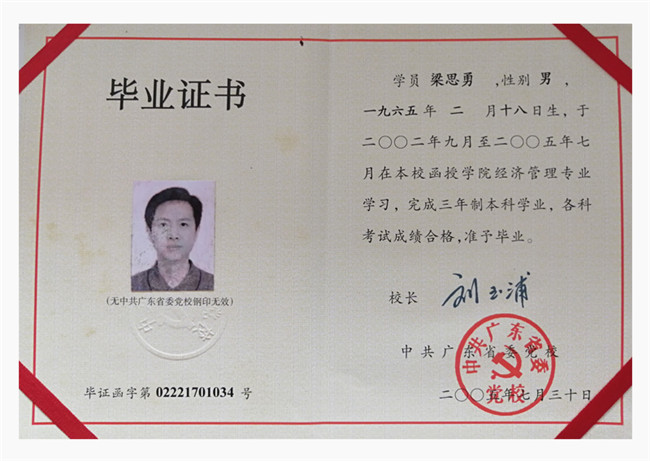 毕业证书
(无中共广东省委党校钢印无效)
毕证函字第 02221701034 号
学员 梁思勇 ,性别 男 ,
一九六五年 二 月十八日生，于
二〇〇二年九月至二〇〇五年七
月在本校函授学院经济管理专业
学习，完成三年制本科学业，各科
考试成绩合格,准予毕业。
校长 刘玉浦
中共广东省委党校
中共广东省委
党校
二〇〇五年七月三十日